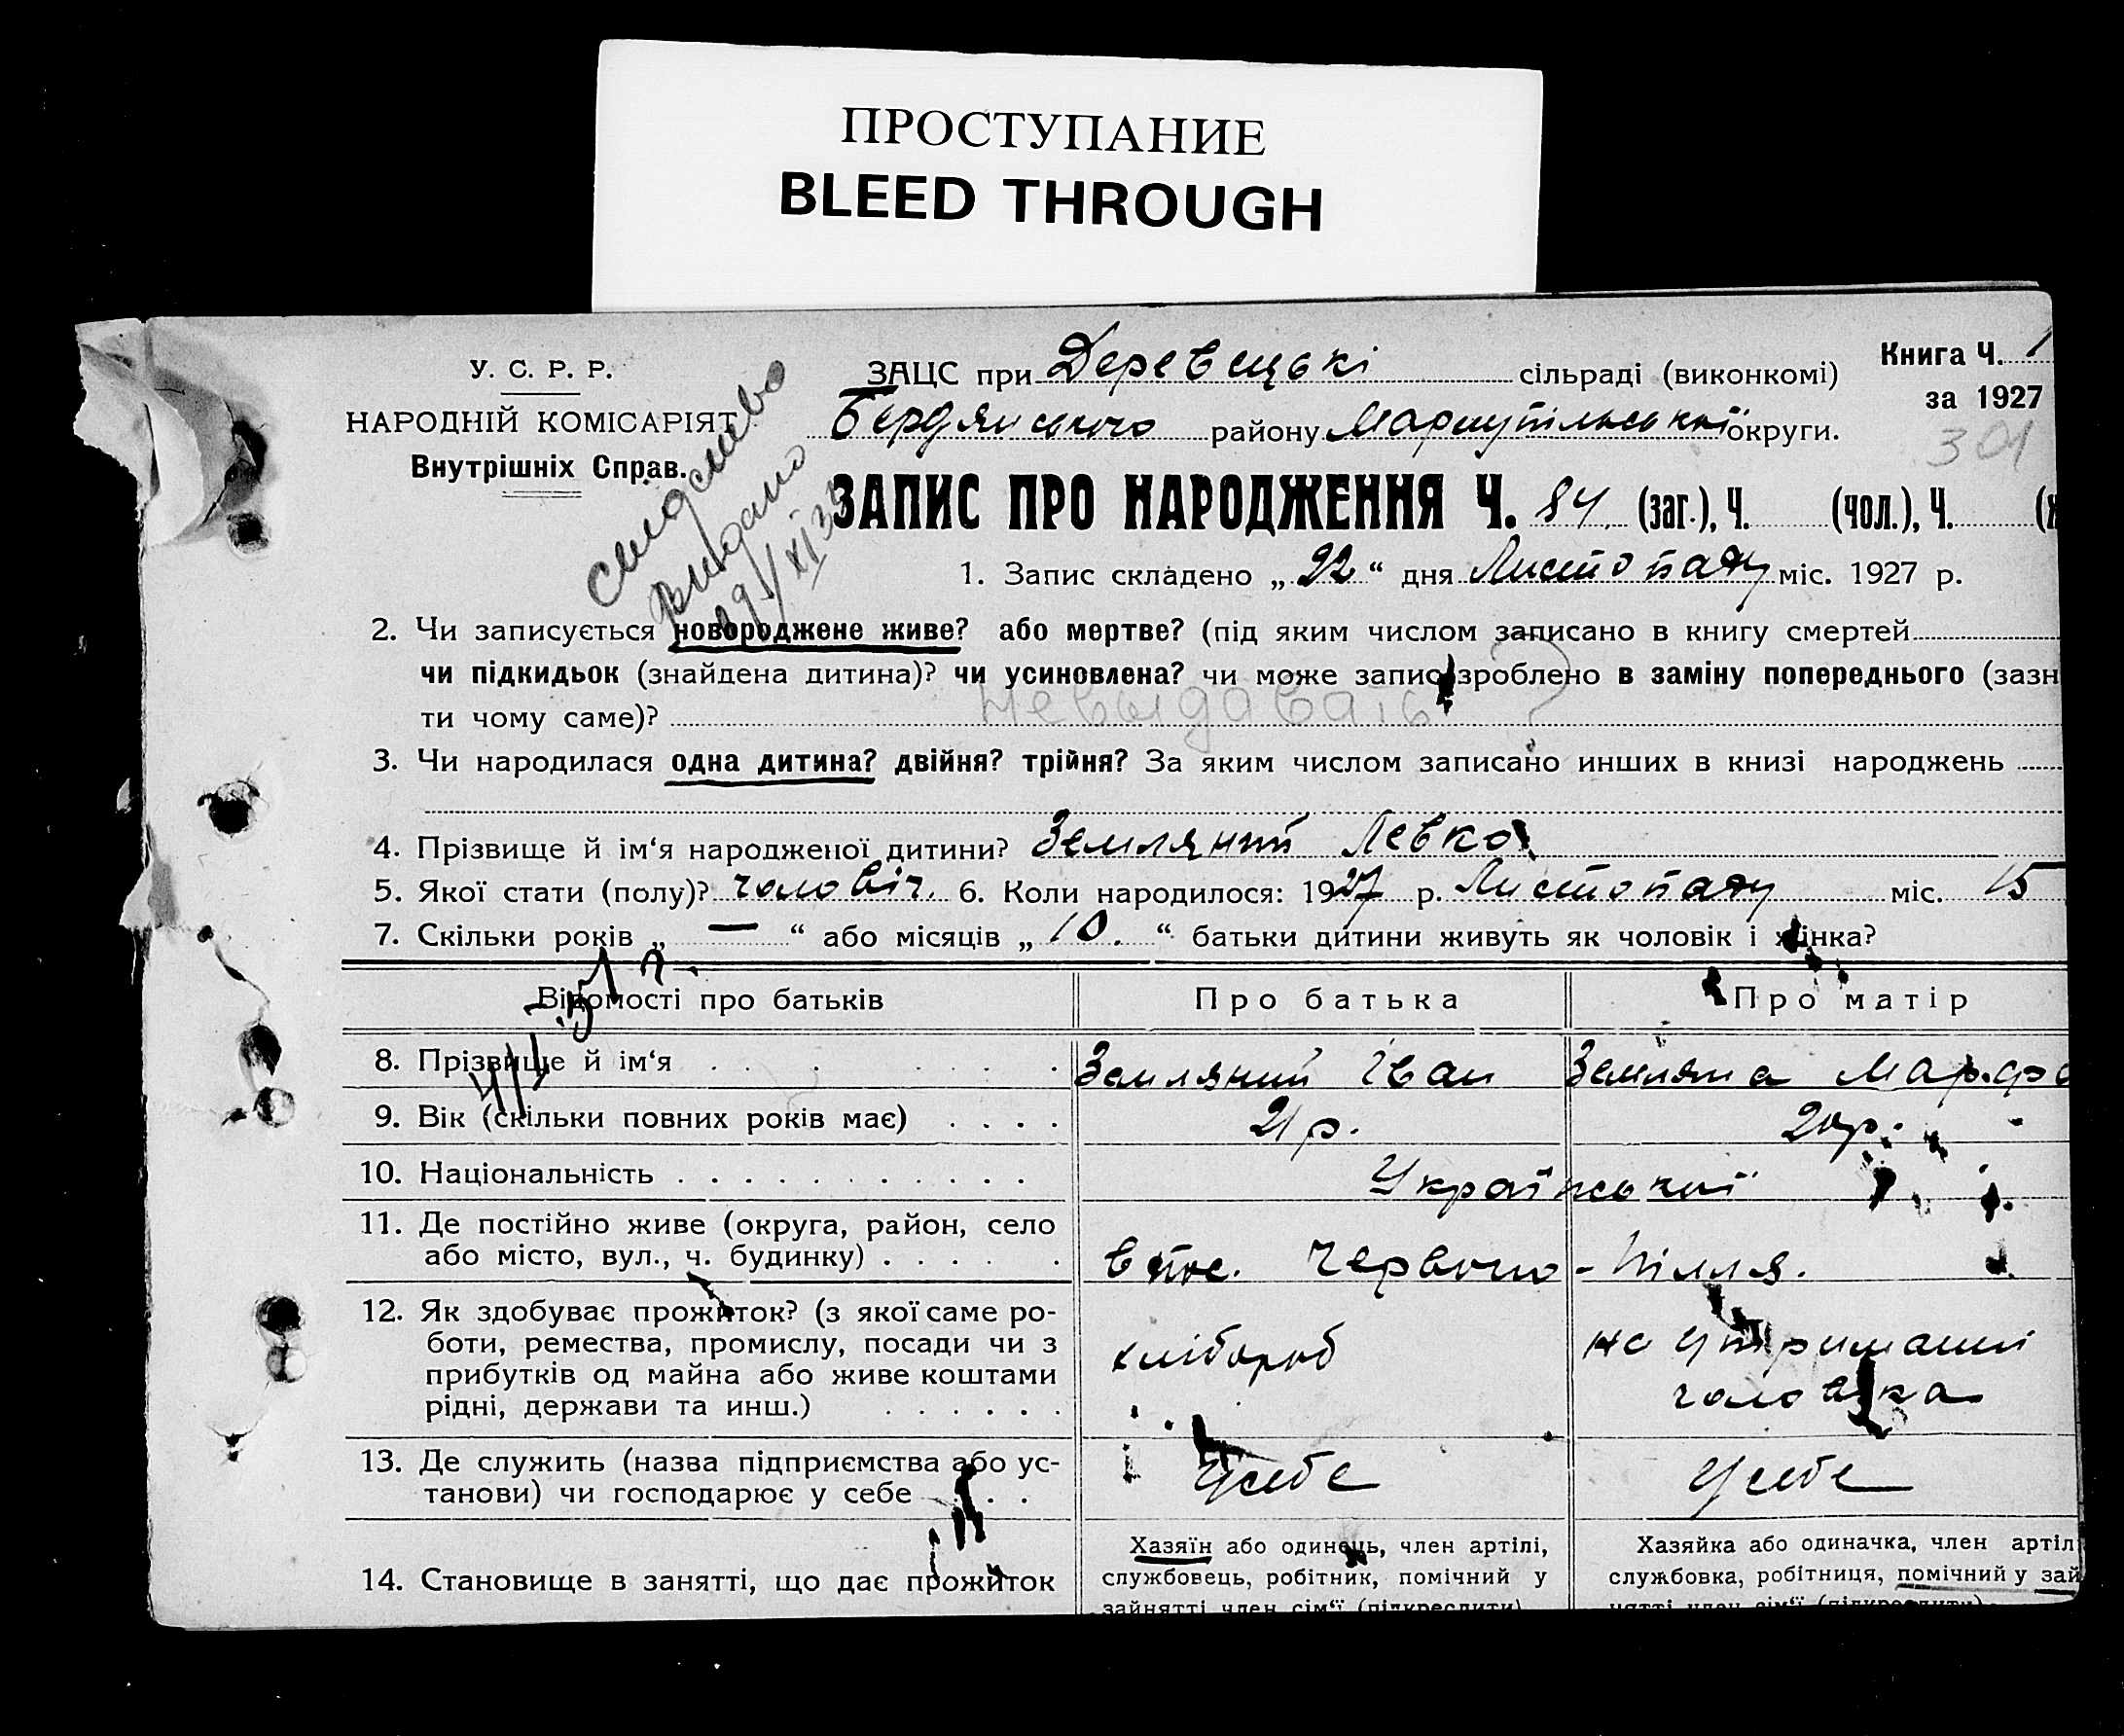 ПРОСТУПАНИЕ
BLEED THROUGH
У. С. Р. Р.
НАРОДНІЙ КОМІСАРІЯТ
Внутрішніх Справ.
ЗАЦС при Деревецькі сільраді (виконкомі)
Книга Ч. 1
за 1927
Бердянського району Маріупільської округи.
301
видано
ЗАПИС ПРО НАРОДЖЕННЯ Ч. 84 (заг.), Ч. (чол.), Ч.
1. Запис складено „ 22 “ дня Листопаду міс. 1927 р.
2. Чи записується новороджене живе? або мертве? (під яким числом записано в книгу смертей
чи підкидьок (знайдена дитина)? чи усиновлена? чи може запис зроблено в заміну попереднього (зазн
ти чому саме)? Невыдавать ?
3. Чи народилася одна дитина? двійня? трійня? За яким числом записано инших в книзі народжень
4. Прізвище й ім‘я народженої дитини? Земляний Левко
5. Якої стати (полу)? чоловіч. 6. Коли народилося: 1927 р. Листопаду міс. 15
7. Скільки років „ — “ або місяців „ 10. “ батьки дитини живуть як чоловік і жінка?
Відомості про батьків
Про батька
Про матір
8. Прізвище й ім‘я
Земляний Іван
Земляна Марфа
9. Вік (скільки повних років має)
21 р.
20 р.
10. Національність
Української
11. Де постійно живе (округа, район, село
або місто, вул., ч. будинку)
в пос. Червоно-Пілля.
12. Як здобуває прожиток? (з якої саме ро-
боти, ремества, промислу, посади чи з
прибутків од майна або живе коштами
рідні, держави та инш.)
хлібороб
на утриманні
чоловіка
13. Де служить (назва підприємства або ус-
танови) чи господарює у себе
У себе
У себе
14. Становище в занятті, що дає прожиток
Хазяїн або одинець, член артілі,
службовець, робітник, помічний у
зайнятті член сім‘ї (підкреслити)
Хазяйка або одиначка, член артіл
службовка, робітниця, помічний у зай
нятті член сім‘ї (підкреслити)